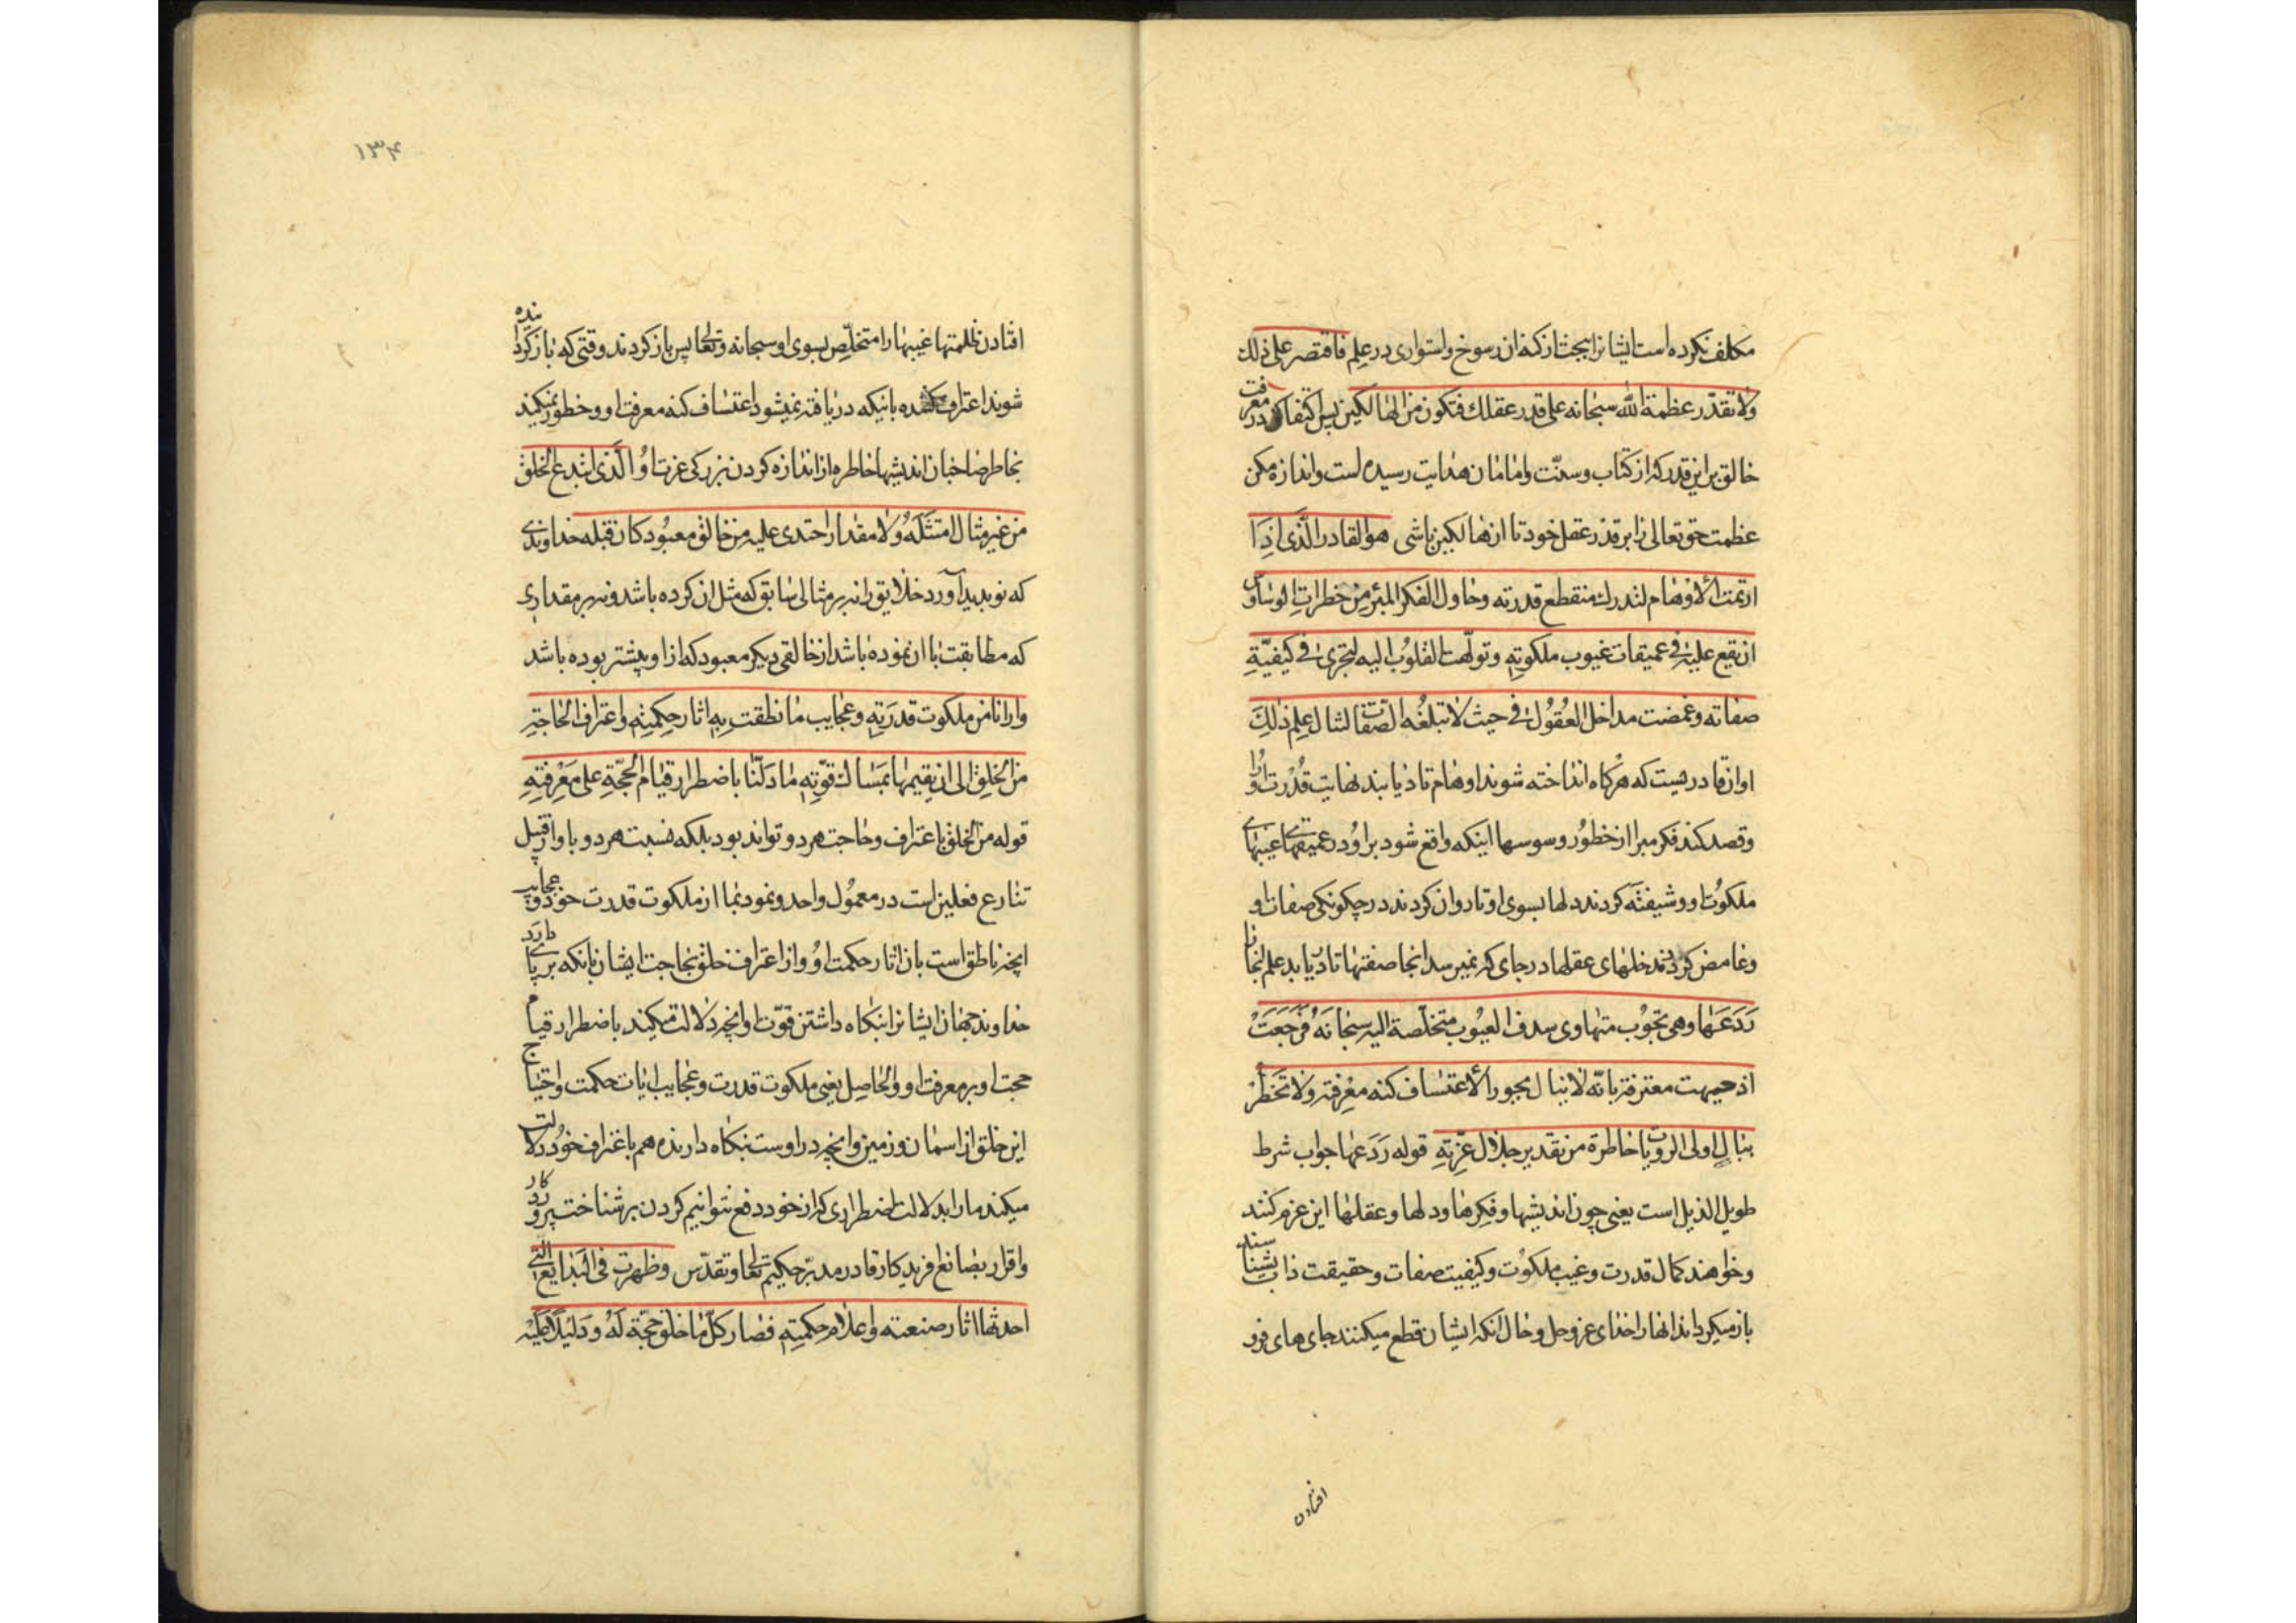 مکلف نکرده است ایشانرا ببحث از کنه ان رسوخ واستواری در علم فاقتصر علی ذلك
ولا تقدّر عظمة الله سبحانه علی قدر عقلك فتکون من الهالکین پس اکتفا کن در معرفت
خالق براین قدر که از کتاب وسنّت وامامان هدایت رسیده است واندازه مکن
عظمت حق تعالی را بر قدر عقل خود تا از هالکین باشی هو القادر الّذی اذِا
ارتمت الأوهام لتدرك منقطع قدرته وحاول الفکر المبرّء من خطرات الوساوس
ان یقع علیه فی عمیقات غیوب ملکوتِهِ وتولّهت القلوُب الیه لتجری فی کیفیّةِ
صفاته وغمضت مداخل العُقُول فی حیث لا تبلغُه الصّفات لتنال علم ذلِكَ
او ان قادر هست که هرکاه انداخته شوند اوهام تا دریابند نهایت قُدْرت اوُرا
وقصد کند فکر مبرا از خطوُر وسوسها اینکه واقع شود بر اوُ در عمیقهای غیبهای
ملکوُت او وشیفته کردند دلها بسوی او تا روان کردند در چکونکی صفات او
وغامض کردند مدخلهای عقلها در جای که نمیرسد انجا صفتها تا دریابد علم انجا را
رَدَعَها وهی تجُوُب مهاوی سدف الغیوُب متخلّصة الیه سبحانَهُ فرَجَعَتْ
اذ جبهت معترفة بانّه لا ینال بجور الأعتساف کنه معْرِفته ولا تَخطُرْ
ببال اولی الرویات خاطرة من تقدیر جلال عزّتِهِ قوله رَدَعها جواب شرط
طویل الذیل است یعنی چون اندیشها وفکرها ودلها وعقلها این عزم کنند
وخواهند کمال قدرت وغیب ملکوُت وکیفیت صفات وحقیقت ذات بشناسند
باز میکرداند انها را خدای عزوجل وحال انکه ایشان قطع میکنند جای های فرو
افتادن
۱۳۴
افتادن ظلمتها غیبها را متخلّص بسوی او سبحانه وتعالی پس باز کردند وقتی که باز کرداننده
شوند اعتراف کننده باینکه دریافته نمیشود اعتساف کنه معرفت او وخطور نمیکند
بخاطر صاحبان اندیشها خاطره از اندازه کردن بزرکی عزت اوُ الّذی ابتدع الخلق
من غیر مثال امتثلَهُ ولا مقدار احتذی علیه من خالق معبُود کان قبله خداوندی
که نو پدید آورد خلایق را نه بر مثالی سابق که مثل ان کرده باشد ونه بر مقداری
که مطابقت با ان نموده باشد از خالقی دیکر معبود که از او پیشتر بوده باشد
وارانا من ملکوت قدرَتِهِ وعجایب ما نطقت بِهِ اثار حِکمتِهِ واعتراف الحاجةِ
من الخلِق الی ان یقیمها بمَساك قوّتِهِ ما دَلّنا باضطرار قیام الحجّةِ علی مَعْرِفتِهِ
قوله من الخلق با اعتراف وحاجت هر دو تواند بود بلکه نسبت هر دو با او از قبیل
تنازع فعلین است در معموُل واحد ونمود بما از ملکوت قدرت خود وعجایب
انچه ناطق است بان اثار حکمت اوُ واز اعتراف خلق بحاجت ایشان بانکه برپای دارد
خداوند جهان ایشانرا بنکاه داشتن قوّت او انچه دلالت میکند باضطرار قیام
حجت او بر معرفت او والحاصل یعنی ملکوت قدرت وعجایب ایات حکمت واحتیاج
این خلق از اسمان وزمین وانچه در اوست بنکاه دارنده هم باعتراف خوُد دلالت
میکند مارا بدلالت اضطراری که از خود دفع نتوانیم کردن بر شناخت پروردکار
واقرار بصانع افریدکار قادر مدبّر حکیم تعالی وتقدّس وظهرت فی البَدایع الّتی
احدثها اثار صنعته واعلام حِکمتِهِ فصار کلّ ما خلق حجّة لَهُ ودَلیلًا عَلَیْه